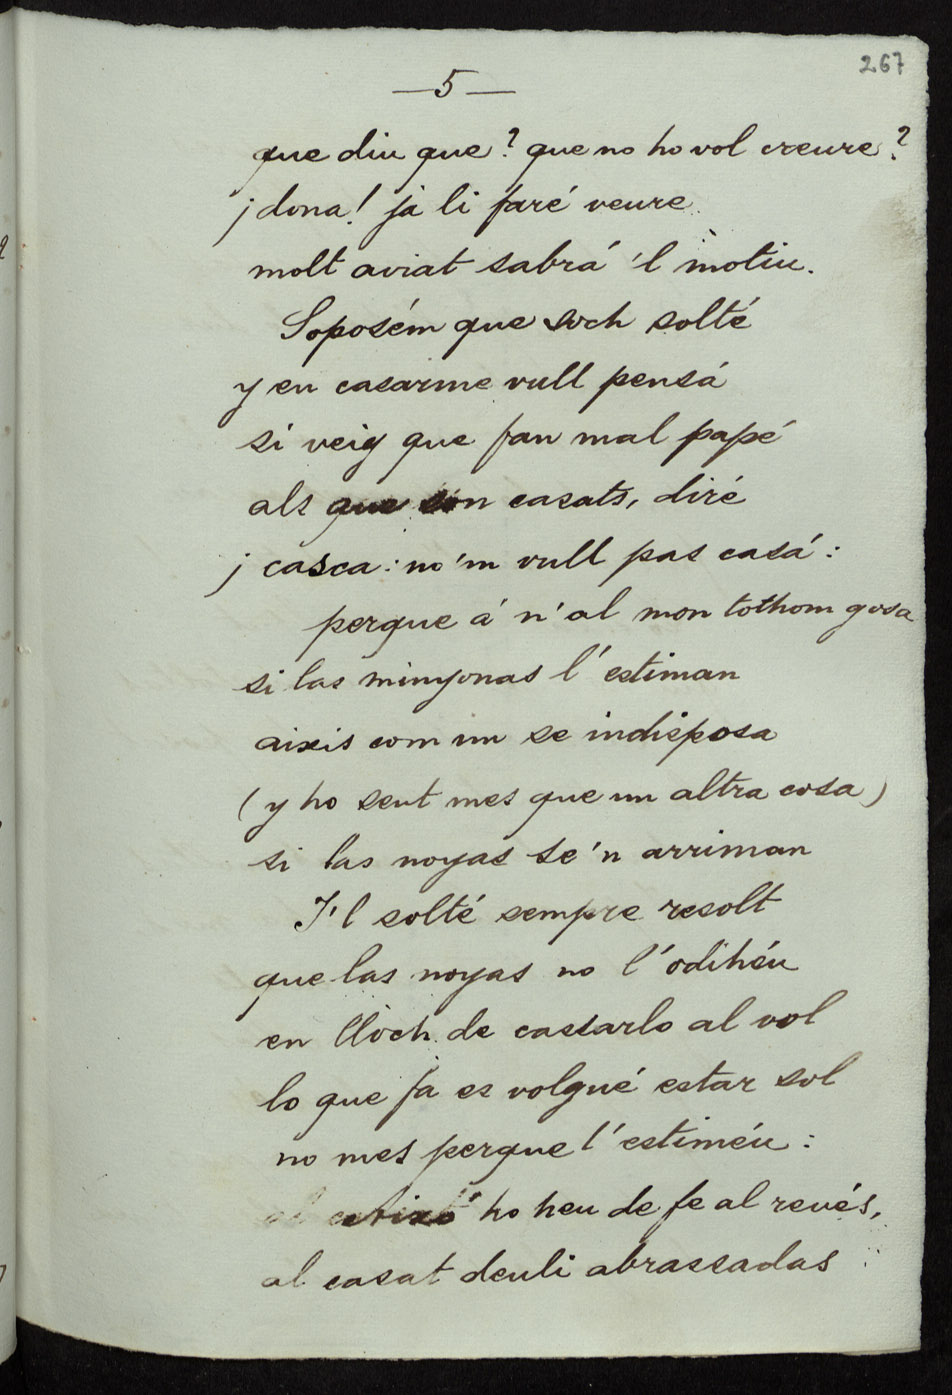 267
—5—
que diu que? que no ho vol creure?
¡dona! ja li faré veure
molt aviat sabrá 'l motiu.
Soposém que soch solté
y en casarme vull pensá
si veig que fan mal papé
als que son casats, diré
¡casca: no 'm vull pas casá:
perque á n' al mon tothom gosa
si las minyonas l' estiman
aixis com un se indisposa
(y ho sent mes que un altra cosa)
si las noyas se 'n arriman
Y 'l solté sempre resolt
que las noyas no l' odihéu
en lloch de cassarlo al vol
lo que fa es volgué estar sol
no mes perque l' estiméu:
aixó ho heu de fe al revés,
al casat deuli abrassadas